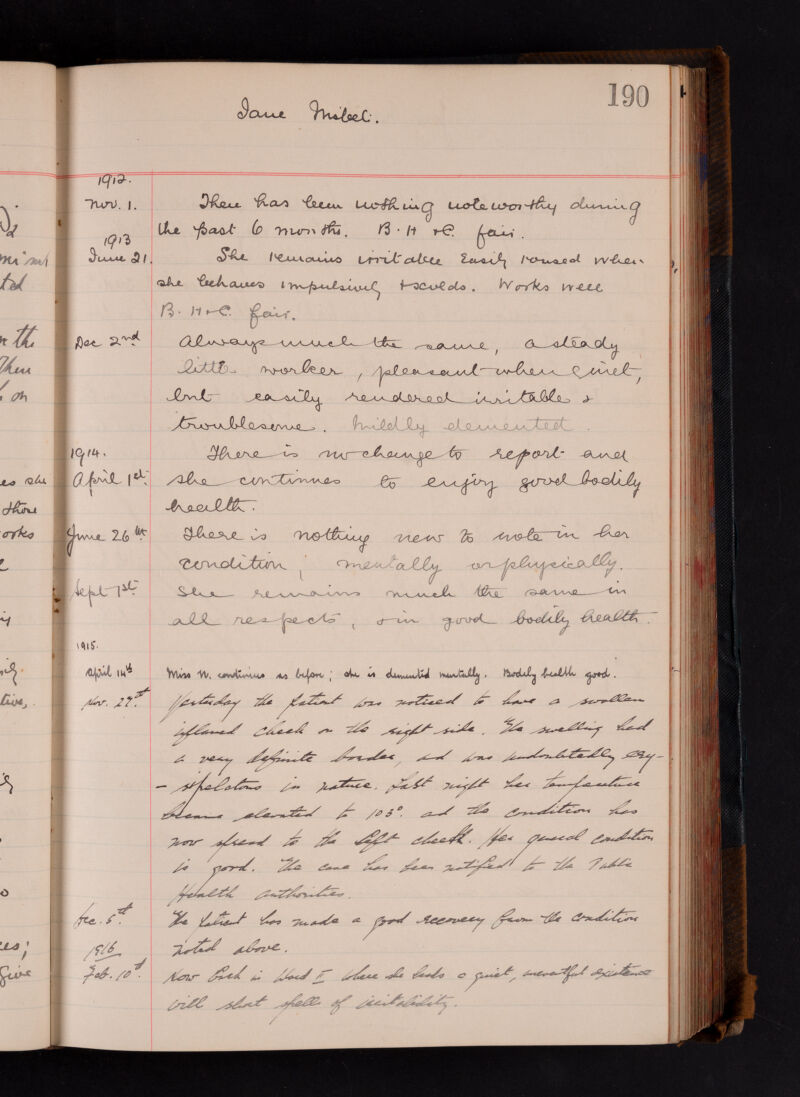 190
Jane
1912.
Nov. 1. There has been nothing noteworthy during
the past 6 months. B. H. & C. fair.
1913
June 21. She remains irritable easily roused when
she behaves impulsively & scolds. Works well
B. H. & C. fair.
Dec 2nd Always much the same, a steady
little worker, pleasant when quiet,
but easily rendered irritable &
troublesome. Mildly demented.
1914. There is no change to report and
April 1st. she continues to enjoy good bodily
health.
June 26th There is nothing new to note in her
condition, mentally or physically.
Sept 1st She remains much the same in
all respects, & in good bodily health.
1915.
April 14th Miss N. continues as before; she is demented mentally. Bodily health good.
Nov. 27th Yesterday the patient was noticed to have a swollen
inflamed cheek on the right side. The swelling had
a very definite border, and was undoubtedly ery-
- sipelatous in nature. Last night her temperature
became elevated to 103°. and the condition has
now spread to the left cheek. Her general condition
is good. The case has been notified to the Public
Health Authorities.
Dec. 5th. The patient has made a good recovery from the condition
1916 noted above.
Feb. 10th. Now back in Ward II where she leads a quiet, uneventful existence
with short spells of irritability.